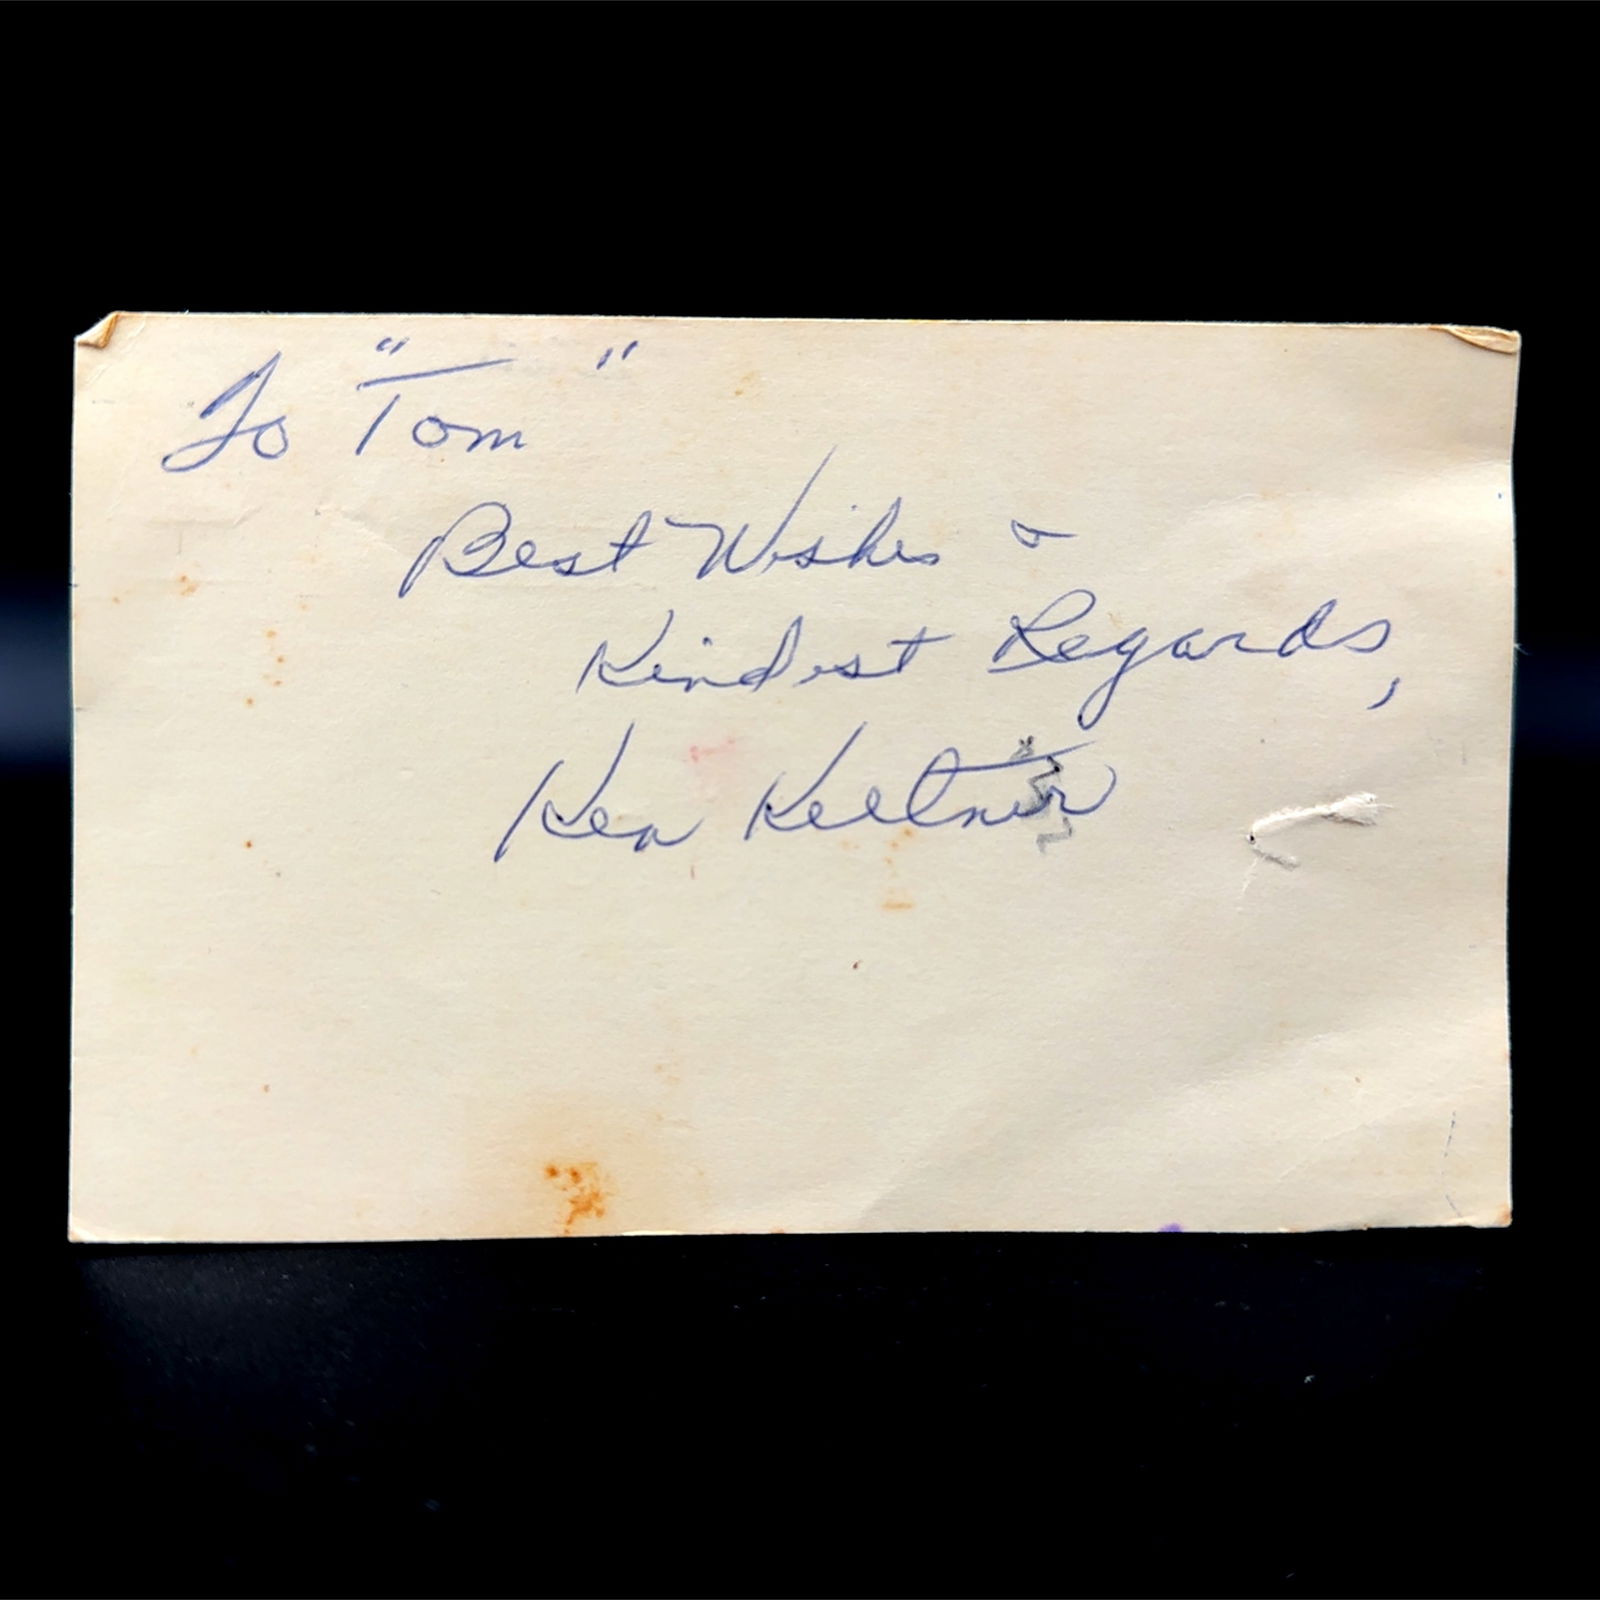 To "Tom"
Best Wishes &
Kindest Regards,
Ken Keltner